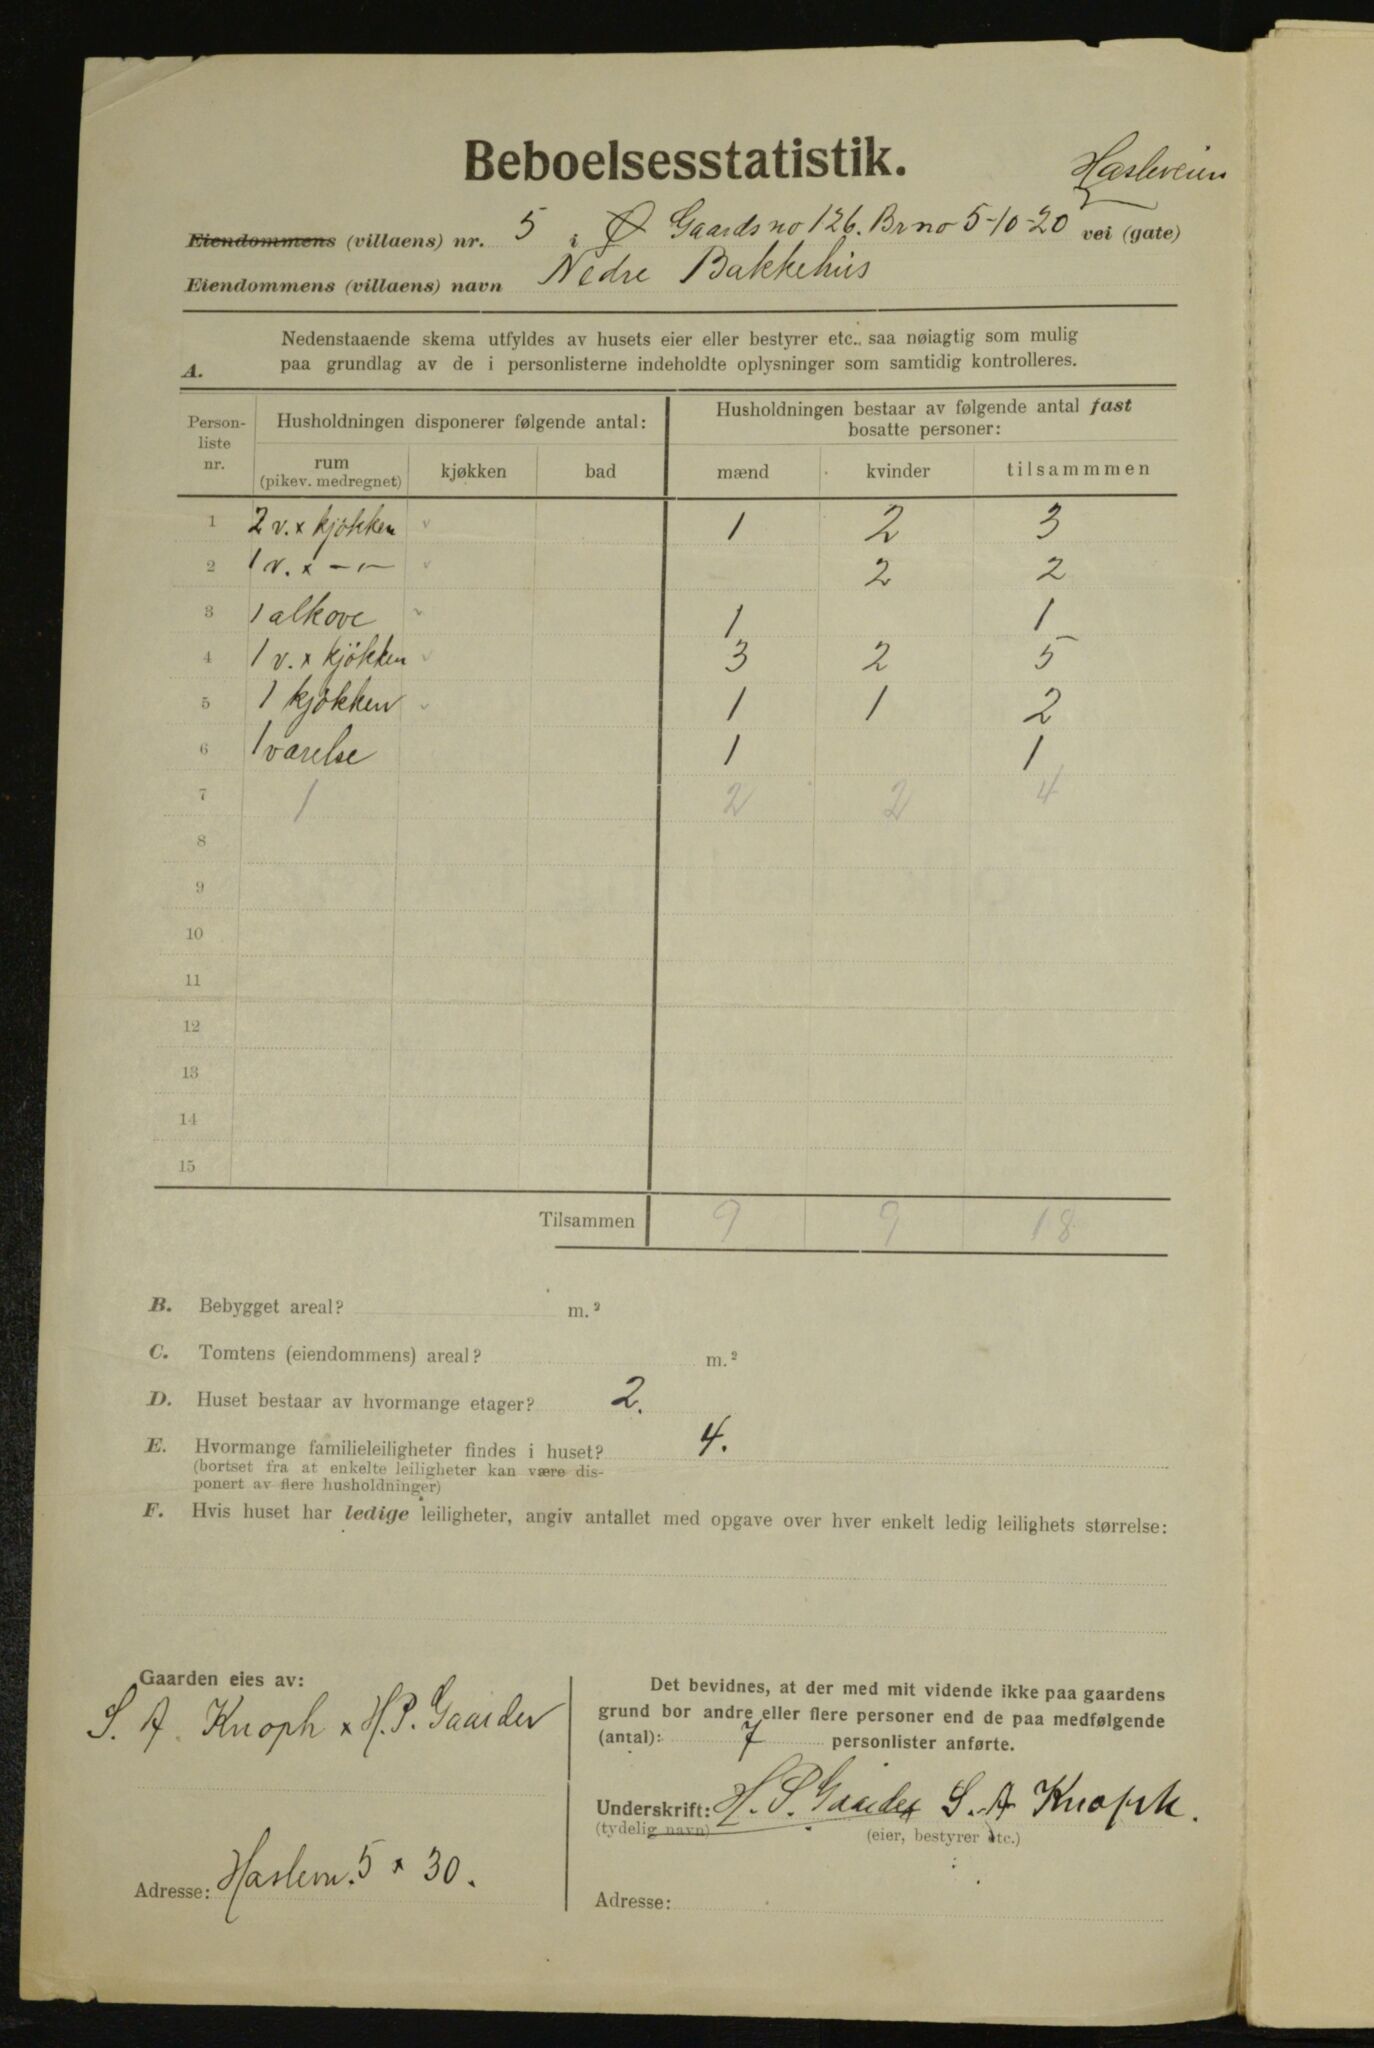 Beboelsesstatistik.
Hasleveien
Eiendommens (villaens) nr. 5 i Ø Gaards no 126. Br no 5-10-20 vei (gate)
Eiendommens (villaens) navn Nedre Bakkehus
Nedenstaaende skema utfyldes av husets eier eller bestyrer etc., saa nøiagtig som mulig
A. paa grundlag av de i personlisterne indeholdte oplysninger som samtidig kontrolleres.
Person-liste nr. Husholdningen disponerer følgende antal: Husholdningen bestaar av følgende antal fast bosatte personer:
rum (pikev. medregnet) kjøkken bad mænd kvinder tilsammmen
1 2 v. x kjøkken v 1 2 3
2 1 v. x -"- v 2 2
3 1 alkove v 1 1
4 1 v. x kjökken v 3 2 5
5 1 kjøkken v 1 1 2
6 1 værelse 1 1
7 1 2 2 4
8
9
10
11
12
13
14
15
Tilsammen 9 9 18
B. Bebygget areal? m.²
C. Tomtens (eiendommens) areal? m.²
D. Huset bestaar av hvormange etager? 2.
E. Hvormange familieleiligheter findes i huset? 4.
(bortset fra at enkelte leiligheter kan være dis-
ponert av flere husholdninger)
F. Hvis huset har ledige leiligheter, angiv antallet med opgave over hver enkelt ledig leilighets størrelse:
Gaarden eies av:
S. A. Knoph x H. P. Gaarder
Adresse: Haslevn. 5 x 30.
Det bevidnes, at der med mit vidende ikke paa gaardens
grund bor andre eller flere personer end de paa medfølgende
(antal): 7 personlister anførte.
Underskrift: H. P. Gaarder S. A Knoph.
(tydelig navn) (eier, bestyrer etc.)
Adresse: